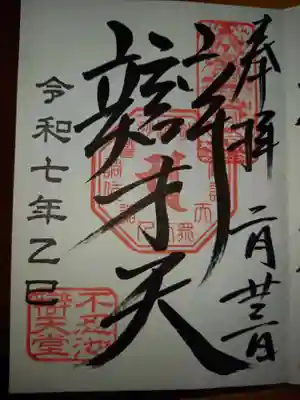 奉拝 二月廿三日
辯才天
令和七年乙巳
不忍池
辯天堂